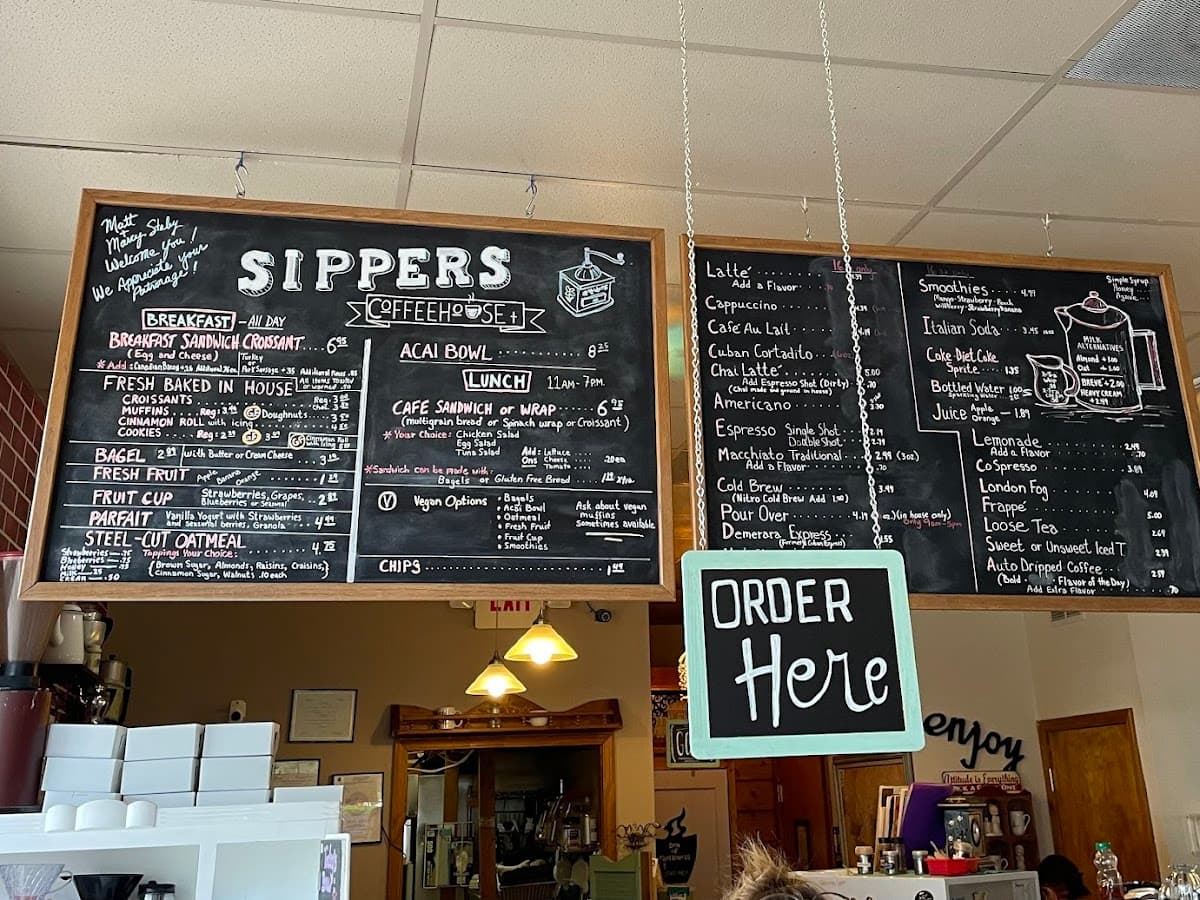 Matt
Marcy - Staby
Welcome You!
We Appreciate your
Patronage!
SIPPERS
COFFEEHOUSE
BREAKFAST - All DAY
BREAKFAST SANDWICH CROISSANT 6.95
(Egg and Cheese)
FRESH BAKED IN HOUSE
All items Toasted
or warmed .50
CROISSANTS
MUFFINS Reg: 3.49 GF Doughnuts
CINNAMON ROLL with icing
COOKIES Reg: 2.39 GF
BAGEL 2.89 with Butter or Cream Cheese
FRESH FRUIT Apple Banana Orange
FRUIT CUP Strawberries, Grapes,
Blueberries or Seasonal
PARFAIT Vanilla Yogurt with Strawberries
and seasonal berries, Granola 4.99
STEEL-CUT OATMEAL 4.75
Toppings Your Choice:
(Brown Sugar, Almonds, Raisins, Craisins,
Cinnamon Sugar, Walnuts .10 each)
ACAI BOWL 8.25
LUNCH 11AM - 7PM.
CAFE SANDWICH or WRAP 6.95
(multigrain bread or Spinach wrap or Croissant)
* Your Choice: Chicken Salad
Egg Salad
Tuna Salad
Add Ons: Lettuce
Cheese
Tomato .20ea
*Sandwich can be made with:
Bagels or Gluten Free Bread
V Vegan Options
• Bagels
• Acai Bowl
• Oatmeal
• Fresh Fruit
• Fruit Cup
• Smoothies
Ask about vegan
muffins
Sometimes available
CHIPS
Latte
Add a Flavor
Cappuccino
Cafe Au Lait
Cuban Cortadito
Chai Latte 5.00
Add Espresso Shot (Dirty)
(Chai made and ground in house)
Americano
Espresso Single Shot
Double Shot
Macchiato Traditional 2.99 (3oz)
Add a Flavor
Cold Brew
(Nitro Cold Brew Add 1.00)
Pour Over 4.19
(in house only)
Only 9am-5pm
Demerara Express
Smoothies 4.99
Mango-Strawberry-Peach
Wildberry-Strawberry Banana
Italian Soda 3.45
Coke-Diet Coke
Sprite 1.35
Bottled Water 1.00
Juice Apple
Orange 1.89
Simple Syrup
Honey
Agave
MILK
ALTERNATIVES
Almond
Oat
BREVE +2.00
HEAVY CREAM
Lemonade
Add a Flavor .70
CoSpresso
London Fog
Frappe 5.00
Loose Tea
Sweet or Unsweet Iced T
Auto Dripped Coffee
(Bold Flavor of the Day)
Add Extra Flavor .70
ORDER
Here
EXIT
enjoy
Attitude is Everything